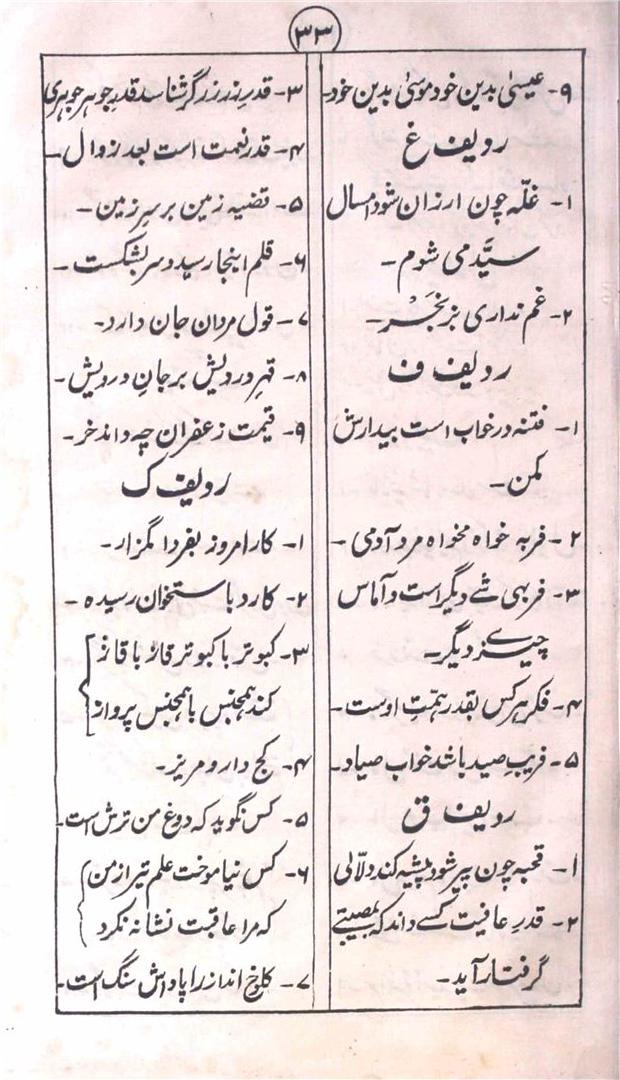 ۳۳
۹- عیسیٰ بدین خود موسیٰ بدین خود-
ردیف غ
۱- غلّہ چون ارزان شود امسال
سیّد می شوم-
۲- غم نداری بز بخَرْ-
ردیف ف
۱- فتنہ در خواب است بیدارش
مکن-
۲- فربہ خواہ مخواہ مرد آدمی-
۳- فربہی شے دیگر است و آماس
چیزے دیگر-
۴- فکر ہر کس بقدر ہمّتِ اوست-
۵- فریبِ صید باشد خواب صیاد-
ردیف ق
۱- قحبہ چون پیر شود پیشہ کند دلّالی
۲- قدرِ عافیت کسے داند کہ بمصیبتے
گرفتار آید-
۳- قدرِ زر زرگر شناسد قدرِ جوہر جوہری
۴- قدر نعمت است بعد زوال-
۵- قضیہ زمین بر سرِ زمین-
۶- قلم اینجا رسید و سر بشکست-
۷- قول مردان جان دارد-
۸- قہرِ درویش بر جانِ درویش-
۹- قیمت زعفران چہ داند خر-
ردیف ک
۱- کار امروز بفردا مگزار-
۲- کارد باستخوان رسیدہ-
۳- کبوتر با کبوتر قاز با قاز
کند ہمجنس با ہمجنس پرواز
۴- کج دار و مریز-
۵- کس نگوید کہ دوغ من ترش است-
۶- کس نیاموخت علم تیر از من
کہ مرا عاقبت نشانہ نکرد
۷- کلوخ انداز را پاداش سنگ است-